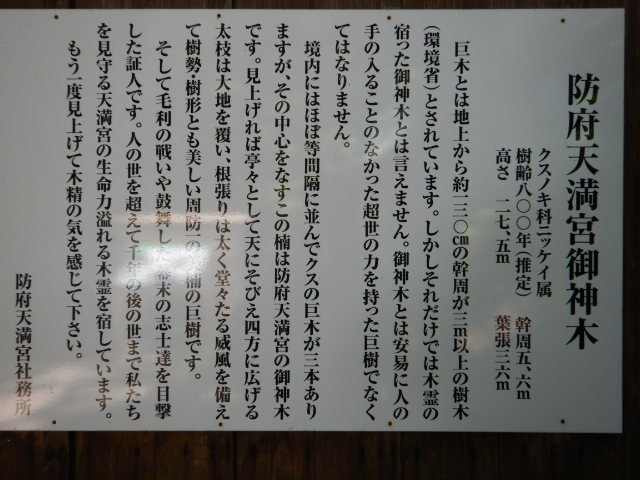 防府天満宮御神木
クスノキ科ニッケイ属
樹齢八〇〇年(推定)　幹周五、六m
高さ　二七、五m　葉張三六m
巨木とは地上から約一三〇㎝の幹周が三m以上の樹木
(環境省)とされています。しかしそれだけでは木霊の
宿った御神木とは言えません。御神木とは安易に人の
手の入ることのなかった超世の力を持った巨樹でなく
てはなりません。
境内にはほぼ等間隔に並んでクスの巨木が三本あり
ますが、その中心をなすこの楠は防府天満宮の御神木
です。見上げれば亭々として天にそびえ四方に広げる
太枝は大地を覆い、根張りは太く堂々たる威風を備え
て樹勢・樹形とも美しい周防一の 楠の巨樹です。
そして毛利の戦いや鼓舞した幕末の志士達を目撃
した証人です。人の世を超えて千年の後の世まで私たち
を見守る天満宮の生命力溢れる木霊を宿しています。
もう一度見上げて木精の気を感じて下さい。
防府天満宮社務所